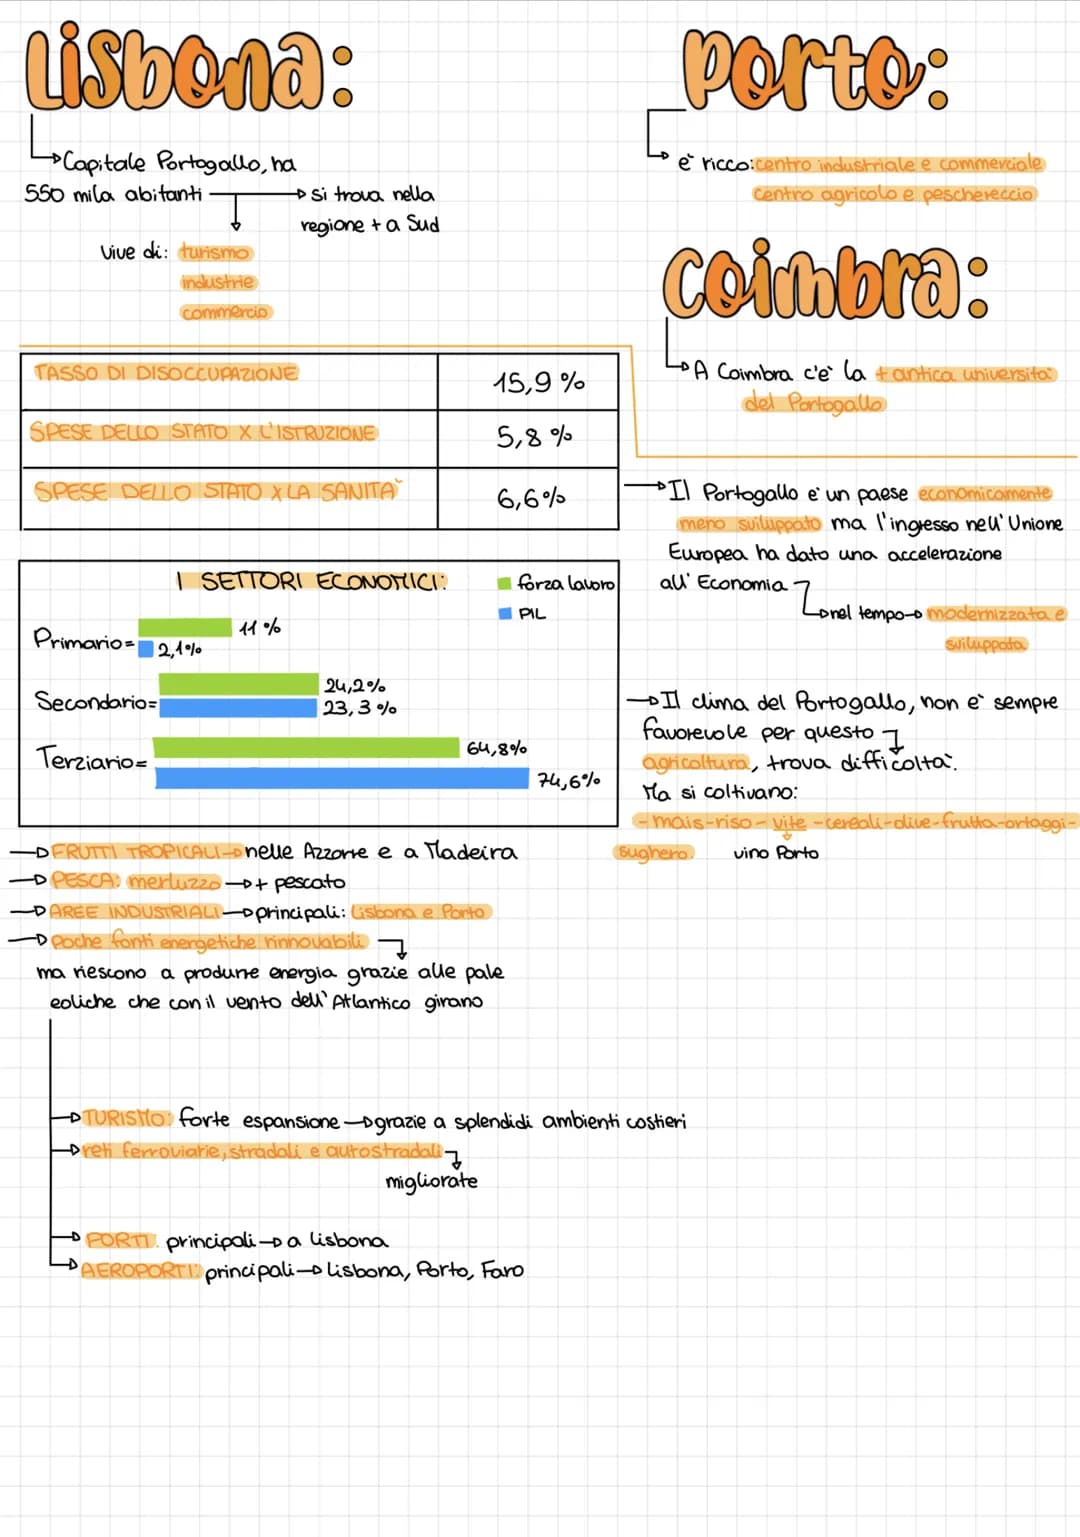 Lisbona:
Capitale Portogallo, ha
550 mila abitanti
si trova nella
regione + a Sud
Vive di: turismo
industrie
commercio
Porto:
è ricco: centro industriale e commerciale
centro agricolo e peschereccio
Coimbra:
A Coimbra c'è la + antica università
del Portogallo
TASSO DI DISOCCUPAZIONE 15,9 %
SPESE DELLO STATO X L'ISTRUZIONE 5,8 %
SPESE DELLO STATO X LA SANITÀ 6,6%
I SETTORI ECONOMICI:
forza lavoro
PIL
Primario= 11 %
2,1%
Secondario= 24,2%
23,3 %
Terziario= 64,8%
74,6%
Il Portogallo è un paese economicamente
meno sviluppato ma l'ingresso nell'Unione
Europea ha dato una accelerazione
all'Economia
nel tempo→ modernizzata e
sviluppata
Il clima del Portogallo, non è sempre
favorevole per questo
agricoltura, trova difficoltà.
Ma si coltivano:
-mais-riso-vite-cereali-olive-frutta-ortaggi-
sughero. vino Porto
→FRUTTI TROPICALI→nelle Azzorre e a Madeira
→PESCA: merluzzo→+ pescato
→AREE INDUSTRIALI→principali: Lisbona e Porto
→Poche fonti energetiche rinnovabili
ma riescono a produrre energia grazie alle pale
eoliche che con il vento dell'Atlantico girano
→TURISMO: forte espansione→grazie a splendidi ambienti costieri
→reti ferroviarie, stradali e autostradali
migliorate
→PORTI: principali→a Lisbona
→AEROPORTI: principali→Lisbona, Porto, Faro